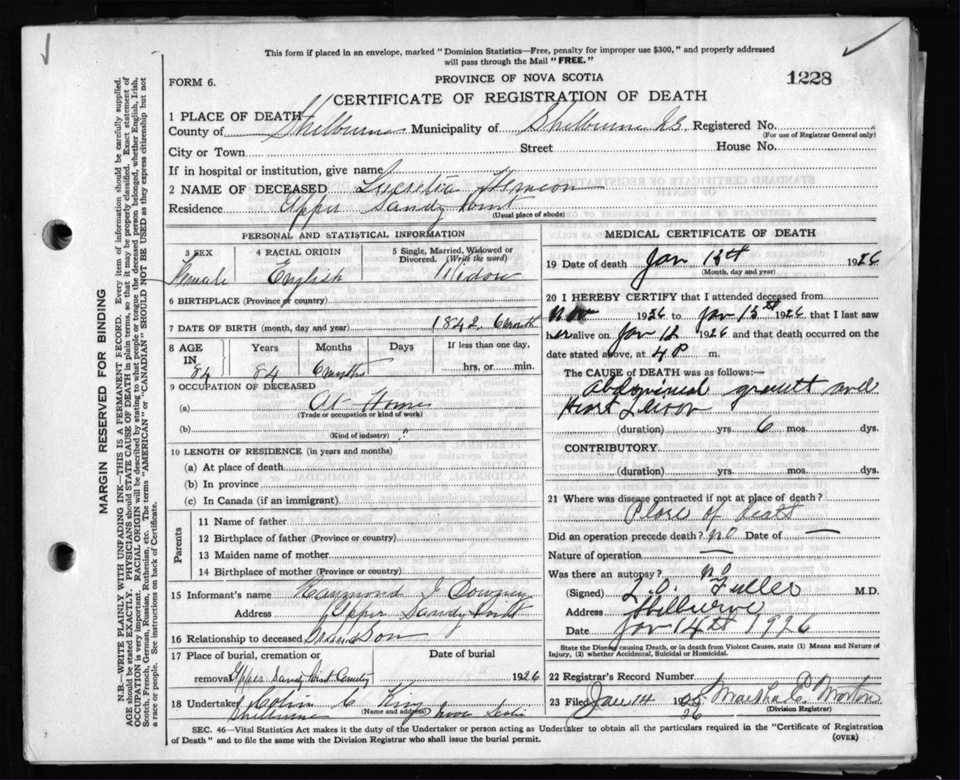 This form if placed in an envelope, marked "Dominion Statistics—Free, penalty for improper use $300," and properly addressed
will pass through the Mail "FREE."
FORM 6.
PROVINCE OF NOVA SCOTIA
1228
CERTIFICATE OF REGISTRATION OF DEATH
1 PLACE OF DEATH
County of Shelburne Municipality of Shelburne Registered No.
(For use of Registrar General only)
City or Town Street House No.
If in hospital or institution, give name
2 NAME OF DECEASED Lucretia
Residence Upper Sandy Point
(Usual place of abode)
PERSONAL AND STATISTICAL INFORMATION
3 SEX 4 RACIAL ORIGIN 5 Single, Married, Widowed or
Divorced. (Write the word)
Female English Widow
6 BIRTHPLACE (Province or country)
7 DATE OF BIRTH (month, day and year) 1842. 6 month
8 AGE Years Months Days If less than one day,
IN
84 84 6 months hrs. or min.
9 OCCUPATION OF DECEASED
(a) At Home
(Trade or occupation or kind of work)
(b)
(Kind of industry)
10 LENGTH OF RESIDENCE (in years and months)
(a) At place of death
(b) In province
(c) In Canada (if an immigrant)
Parents
11 Name of father
12 Birthplace of father (Province or country)
13 Maiden name of mother
14 Birthplace of mother (Province or country)
15 Informant's name Raymond J
Address Upper Sandy Point
16 Relationship to deceased Grandson
17 Place of burial, cremation or Date of burial
removal Upper Sandy Point 1926
18 Undertaker Colin C King
(Name and address)
Shelburne Nova Scotia
MEDICAL CERTIFICATE OF DEATH
19 Date of death Jan 13th 1926
(Month, day and year)
20 I HEREBY CERTIFY that I attended deceased from
Nov 1926 to Jan 13th 1926 that I last saw
her alive on Jan 12 1926 and that death occurred on the
date stated above, at 4 P m.
The CAUSE OF DEATH was as follows:—
Abdominal growth and
Heart Lesion
(duration) yrs. 6 mos. dys.
CONTRIBUTORY
(duration) yrs. mos. dys.
21 Where was disease contracted if not at place of death?
Place of death
Did an operation precede death? no Date of —
Nature of operation —
Was there an autopsy? no
(Signed) Fuller M.D.
Address Shelburne
Date Jan 14th 1926
State the Disease causing Death, or in death from Violent Causes, state (1) Means and Nature of
Injury, (2) whether Accidental, Suicidal or Homicidal.
22 Registrar's Record Number
23 Filed Jan 14 1926 Morton
(Division Registrar)
SEC. 46—Vital Statistics Act makes it the duty of the Undertaker or person acting as Undertaker to obtain all the particulars required in the "Certificate of Registration
of Death" and to file the same with the Division Registrar who shall issue the burial permit.
(OVER)
MARGIN RESERVED FOR BINDING
N.B.—WRITE PLAINLY WITH UNFADING INK—THIS IS A PERMANENT RECORD. Every item of information should be carefully supplied.
AGE should be stated EXACTLY. PHYSICIANS should STATE CAUSE OF DEATH in plain terms, so that it may be properly classified. Exact statement of
OCCUPATION is very important. RACIAL ORIGIN will be described by stating to what people or tongue the deceased person belonged, whether English, Irish,
Scotch, French, German, Russian, Ruthenian, etc. The terms "AMERICAN" or "CANADIAN" SHOULD NOT BE USED as they express citizenship but not
a race or people. See instructions on back of Certificate.